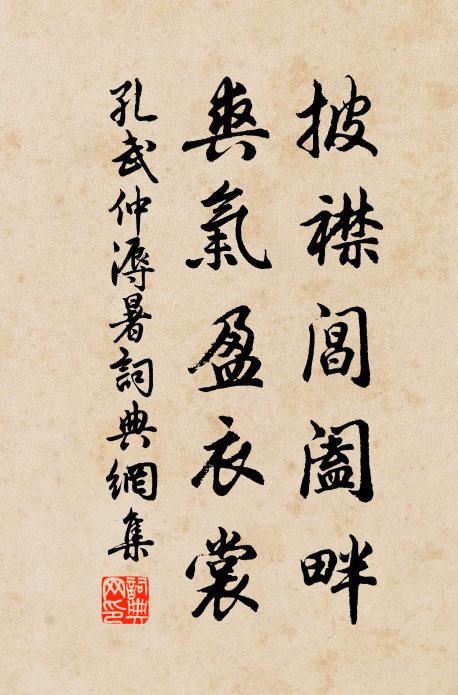 披襟閶闔畔
爽氣盈衣裳
孔武仲溽暑詞典網集
詞典網印